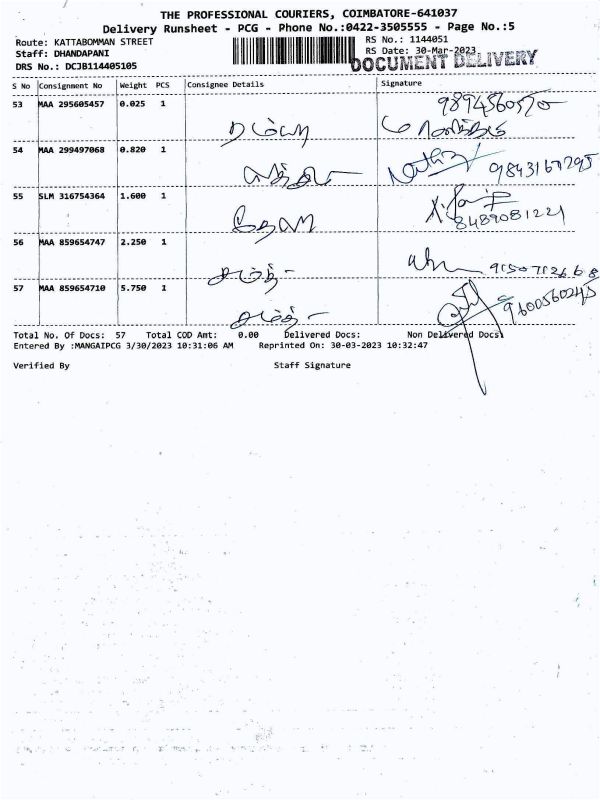 THE PROFESSIONAL COURIERS, COIMBATORE-641037
Delivery Runsheet - PCG - Phone No.:0422-3505555 - Page No.:5
Route: KATTABOMMAN STREET RS No.: 1144051
Staff: DHANDAPANI RS Date: 30-Mar-2023
DOCUMENT DELIVERY
DRS No.: DCJB114405105
S No Consignment No Weight PCS Consignee Details Signature
53 MAA 295605457 0.025 1
ரம்யா
54 MAA 299497068 0.820 1
9843167295
55 SLM 316754364 1.600 1
8489081221
56 MAA 859654747 2.250 1
9150712668
57 MAA 859654710 5.750 1
9600560245
Total No. Of Docs: 57 Total COD Amt: 0.00 Delivered Docs: Non Delivered Docs:
Entered By :MANGAIPCG 3/30/2023 10:31:06 AM Reprinted On: 30-03-2023 10:32:47
Verified By Staff Signature